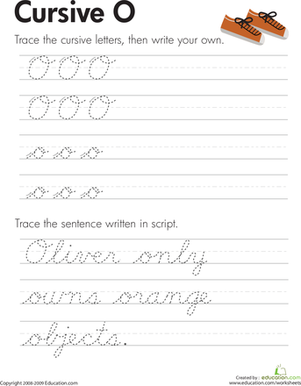 Cursive O
Trace the cursive letters, then write your own.
O O O
O O O
o o o
o o o
Trace the sentence written in script.
Oliver only
owns orange
objects.
Copyright 2008-2009 Education.com
education.com
www.education.com/worksheets